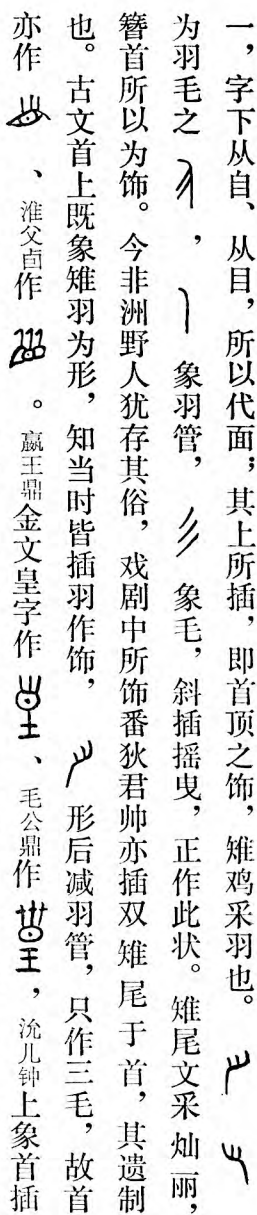 一，字下从自、从目，所以代面；其上所插，即首顶之饰，雉鸡采羽也。
为羽毛之，象羽管，象毛，斜插摇曳，正作此状。雉尾文采灿丽，
簪首所以为饰。今非洲野人犹存其俗，戏剧中所饰番狄君帅亦插双雉尾于首，其遗制
也。古文首上既象雉羽为形，知当时皆插羽作饰，形后减羽管，只作三毛，故首
亦作、淮父卣作。嬴王鼎金文皇字作、毛公鼎作，沇儿钟上象首插